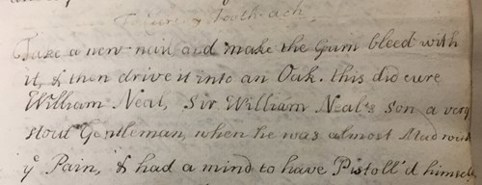 To cure ye Tooth-ach
Take a new nail and make the Gum bleed with
it, & then drive it into an Oak. this did cure
William Neal, Sir William Neal's Son a very
stout Gentleman, when he was almost Mad with
ye Pain, & had a mind to have Pistoll'd himself